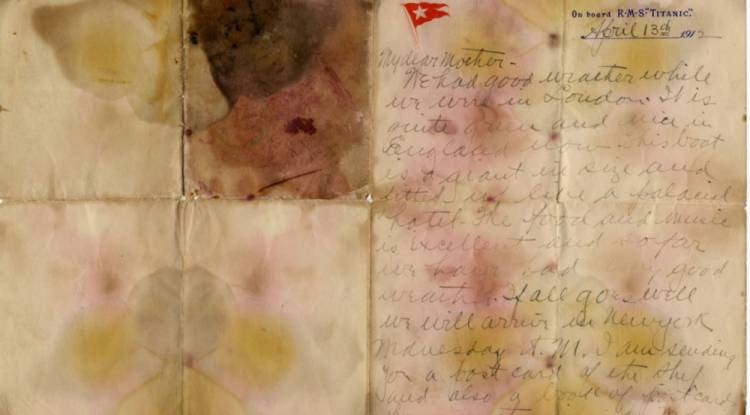 On board R·M·S·"TITANIC."
April 13th 1912
My dear Mother-
We had good weather while
we were in London. It is
quite green and nice in
England now. This boat
is a giant in size and
fitted up like a palacial
hotel. The food and music
is excellent and so far
we have had very good
weather. If all goes well
we will arrive in New york
Wednesday A.M. I am sending
you a post card of the ship
and also a book of postcards